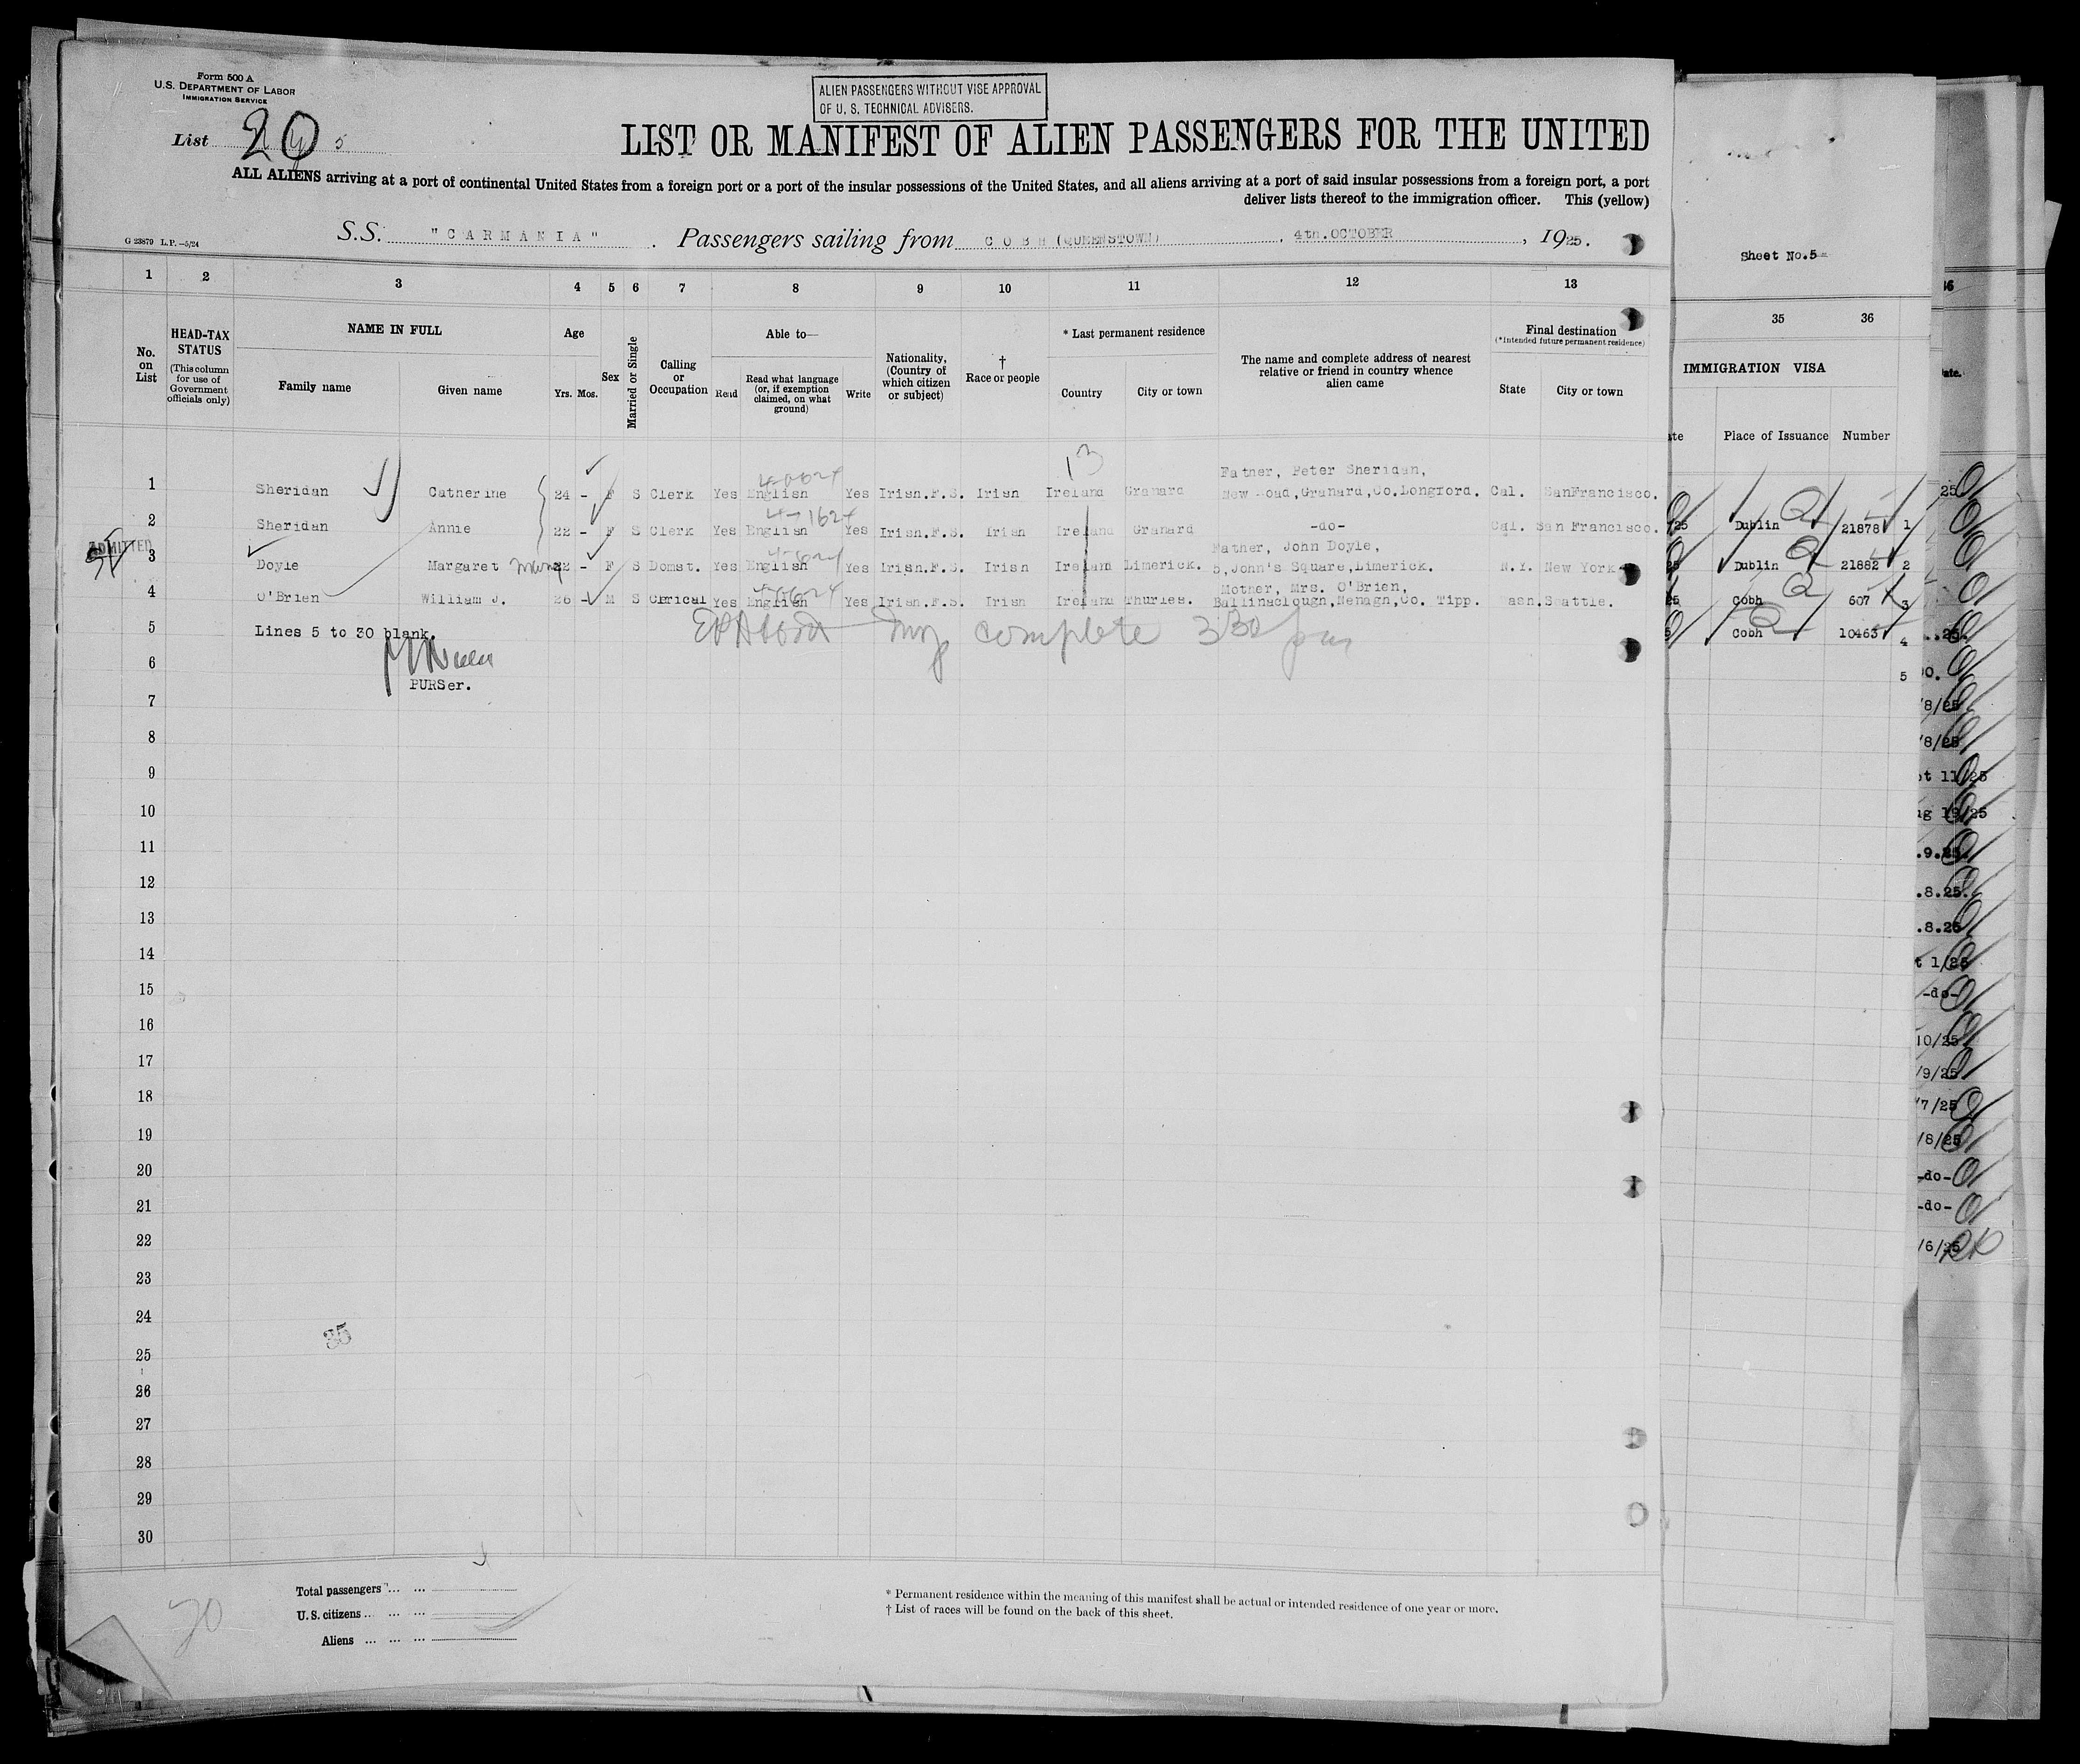 Form 500 A
U.S. DEPARTMENT OF LABOR
IMMIGRATION SERVICE
ALIEN PASSENGERS WITHOUT VISE APPROVAL
OF U. S. TECHNICAL ADVISERS.
List 20 5
LIST OR MANIFEST OF ALIEN PASSENGERS FOR THE UNITED
ALL ALIENS arriving at a port of continental United States from a foreign port or a port of the insular possessions of the United States, and all aliens arriving at a port of said insular possessions from a foreign port, a port
deliver lists thereof to the immigration officer. This (yellow)
G 23879 L.P.—5/24
S.S. "CARMANIA". Passengers sailing from COBH (QUEENSTOWN), 4th.OCTOBER, 1925.
Sheet No.5
1 2 3 4 5 6 7 8 9 10 11 12 13 35 36
No. on List
HEAD-TAX STATUS (This column for use of Government officials only)
NAME IN FULL
Family name Given name
Age
Yrs. Mos.
Sex
Married or Single
Calling or Occupation
Able to—
Read
Read what language (or, if exemption claimed, on what ground)
Write
Nationality, (Country of which citizen or subject)
† Race or people
* Last permanent residence
Country City or town
The name and complete address of nearest relative or friend in country whence alien came
Final destination
(*Intended future permanent residence)
State City or town
IMMIGRATION VISA
Place of Issuance Number
13
Father, Peter Sheridan,
1 Sheridan Catherine 24 - F S Clerk Yes English Yes Irish.F.S. Irish Ireland Granard New Road,Granard,Co.Longford. Cal. SanFrancisco.
2 Sheridan Annie 22 - F S Clerk Yes English Yes Irish.F.S. Irish Ireland Granard -do- Cal. San Francisco.
ADMITTED
Father, John Doyle,
3 Doyle Margaret 22 - F S Domst. Yes English Yes Irish.F.S. Irish Ireland Limerick. 5,John's Square,Limerick. N.Y. New York
Mother, Mrs. O'Brien,
4 O'Brien William J. 26 - M S Clerical Yes English Yes Irish.F.S. Irish Ireland Thurles. Ballinaclough,Nenagh,Co. Tipp. Wash.Seattle.
5 Lines 5 to 30 blank.
complete 330 pm
6
PURSer.
7
8
9
10
11
12
13
14
15
16
17
18
19
20
21
22
23
24
35
25
26
27
28
29
30
Dublin 21878 1
Dublin 21882 2
Cobh 607 3
Cobh 10463 4
5
Total passengers ... ...
U. S. citizens ... ... ...
Aliens ... ... ...
20
* Permanent residence within the meaning of this manifest shall be actual or intended residence of one year or more.
† List of races will be found on the back of this sheet.